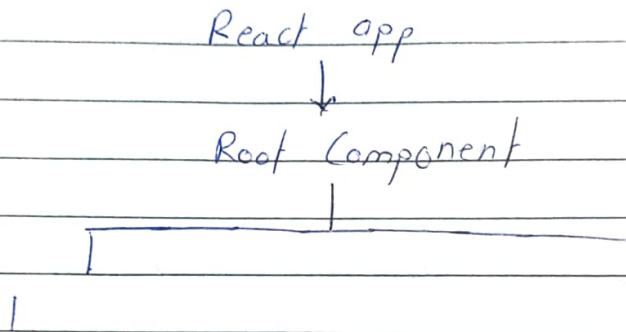 React app
Root Component